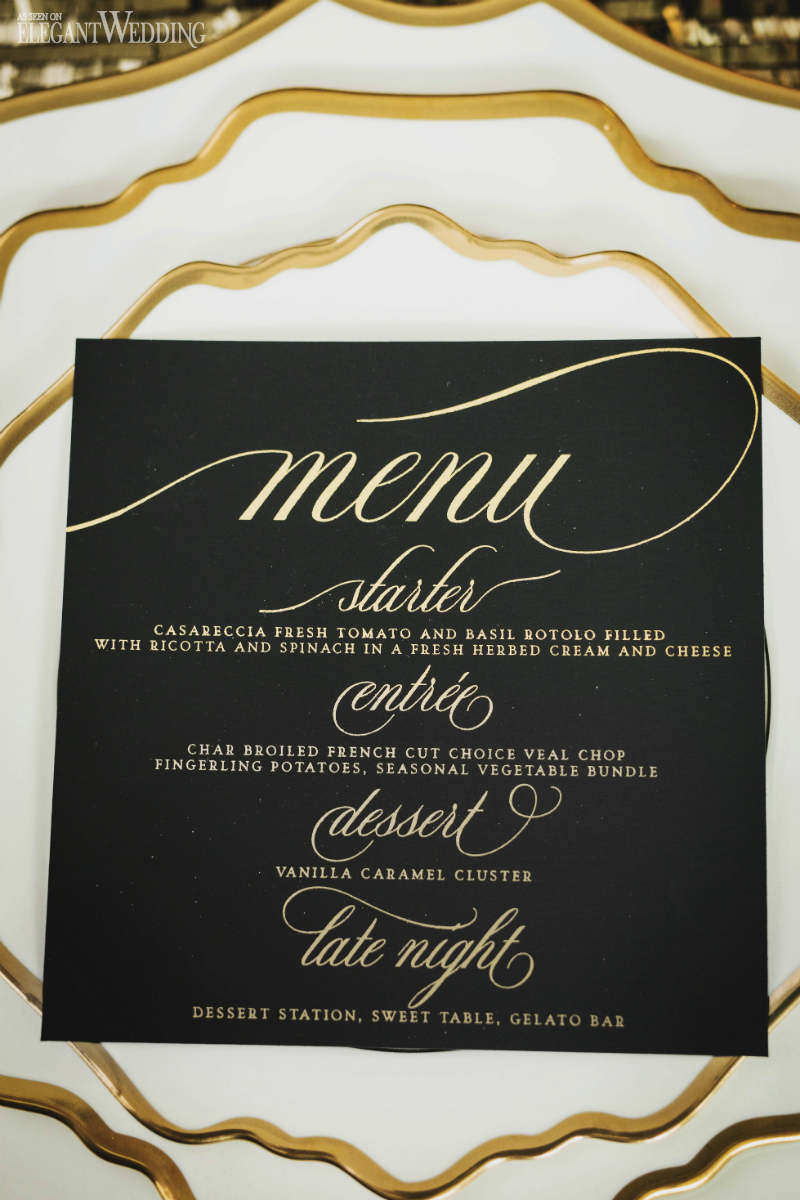 AS SEEN ON
ELEGANTWEDDING
menu
starter
CASARECCIA FRESH TOMATO AND BASIL ROTOLO FILLED
WITH RICOTTA AND SPINACH IN A FRESH HERBED CREAM AND CHEESE
entrée
CHAR BROILED FRENCH CUT CHOICE VEAL CHOP
FINGERLING POTATOES, SEASONAL VEGETABLE BUNDLE
dessert
VANILLA CARAMEL CLUSTER
late night
DESSERT STATION, SWEET TABLE, GELATO BAR